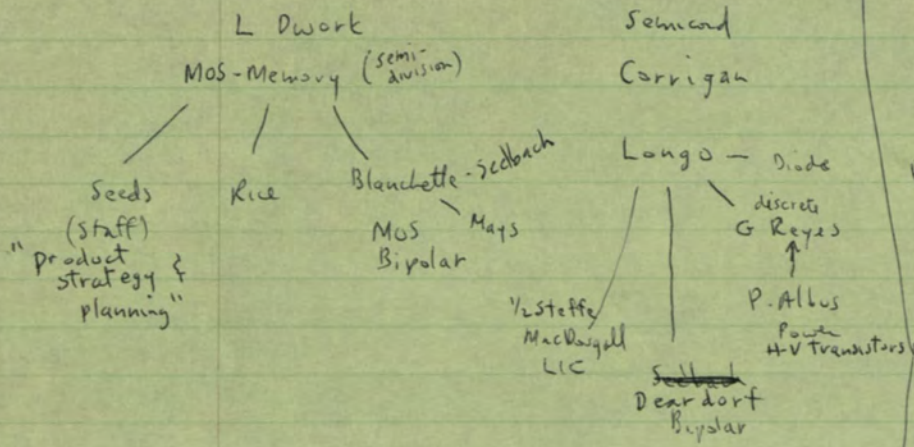 L Dwork
MOS-Memory (semi-division)
Seeds
(Staff)
"Product
strategy &
planning"
Rice
Blanchette - Seelbach
MOS
Bipolar
Mays
Semicond
Corrigan
Longo - Diode
discrete
G Reyes
P. Albus
Power
H-V Transistors
1/2 Steffe
MacDougall
LIC
Deardorf
Bipolar